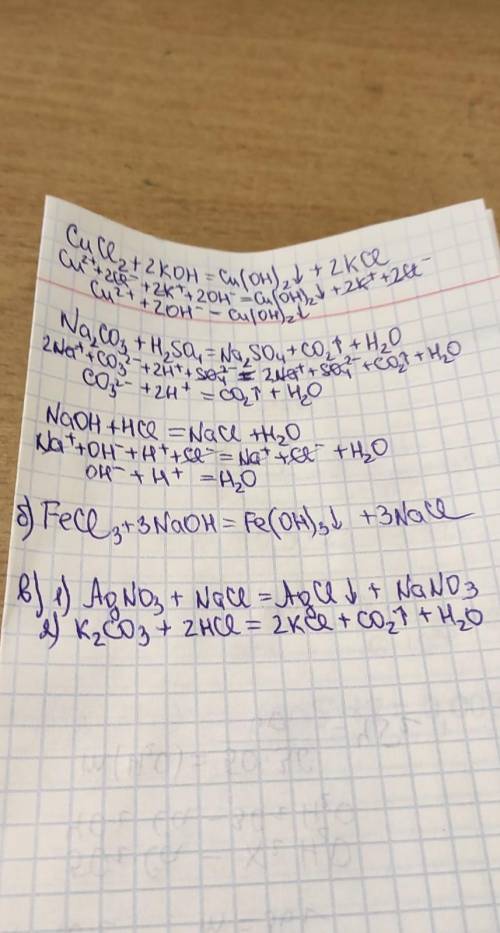 CuCl₂ + 2KOH = Cu(OH)₂↓ + 2KCl
Cu²⁺ + 2Cl⁻ + 2K⁺ + 2OH⁻ = Cu(OH)₂↓ + 2K⁺ + 2Cl⁻
Cu²⁺ + 2OH⁻ – Cu(OH)₂↓
Na₂CO₃ + H₂SO₄ = Na₂SO₄ + CO₂↑ + H₂O
2Na⁺ + CO₃²⁻ + 2H⁺ + SO₄²⁻ = 2Na⁺ + SO₄²⁻ + CO₂↑ + H₂O
CO₃²⁻ + 2H⁺ = CO₂↑ + H₂O
NaOH + HCl = NaCl + H₂O
Na⁺ + OH⁻ + H⁺ + Cl⁻ = Na⁺ + Cl⁻ + H₂O
OH⁻ + H⁺ = H₂O
б) FeCl₃ + 3NaOH = Fe(OH)₃↓ + 3NaCl
в) 1) AgNO₃ + NaCl = AgCl↓ + NaNO₃
2) K₂CO₃ + 2HCl = 2KCl + CO₂↑ + H₂O